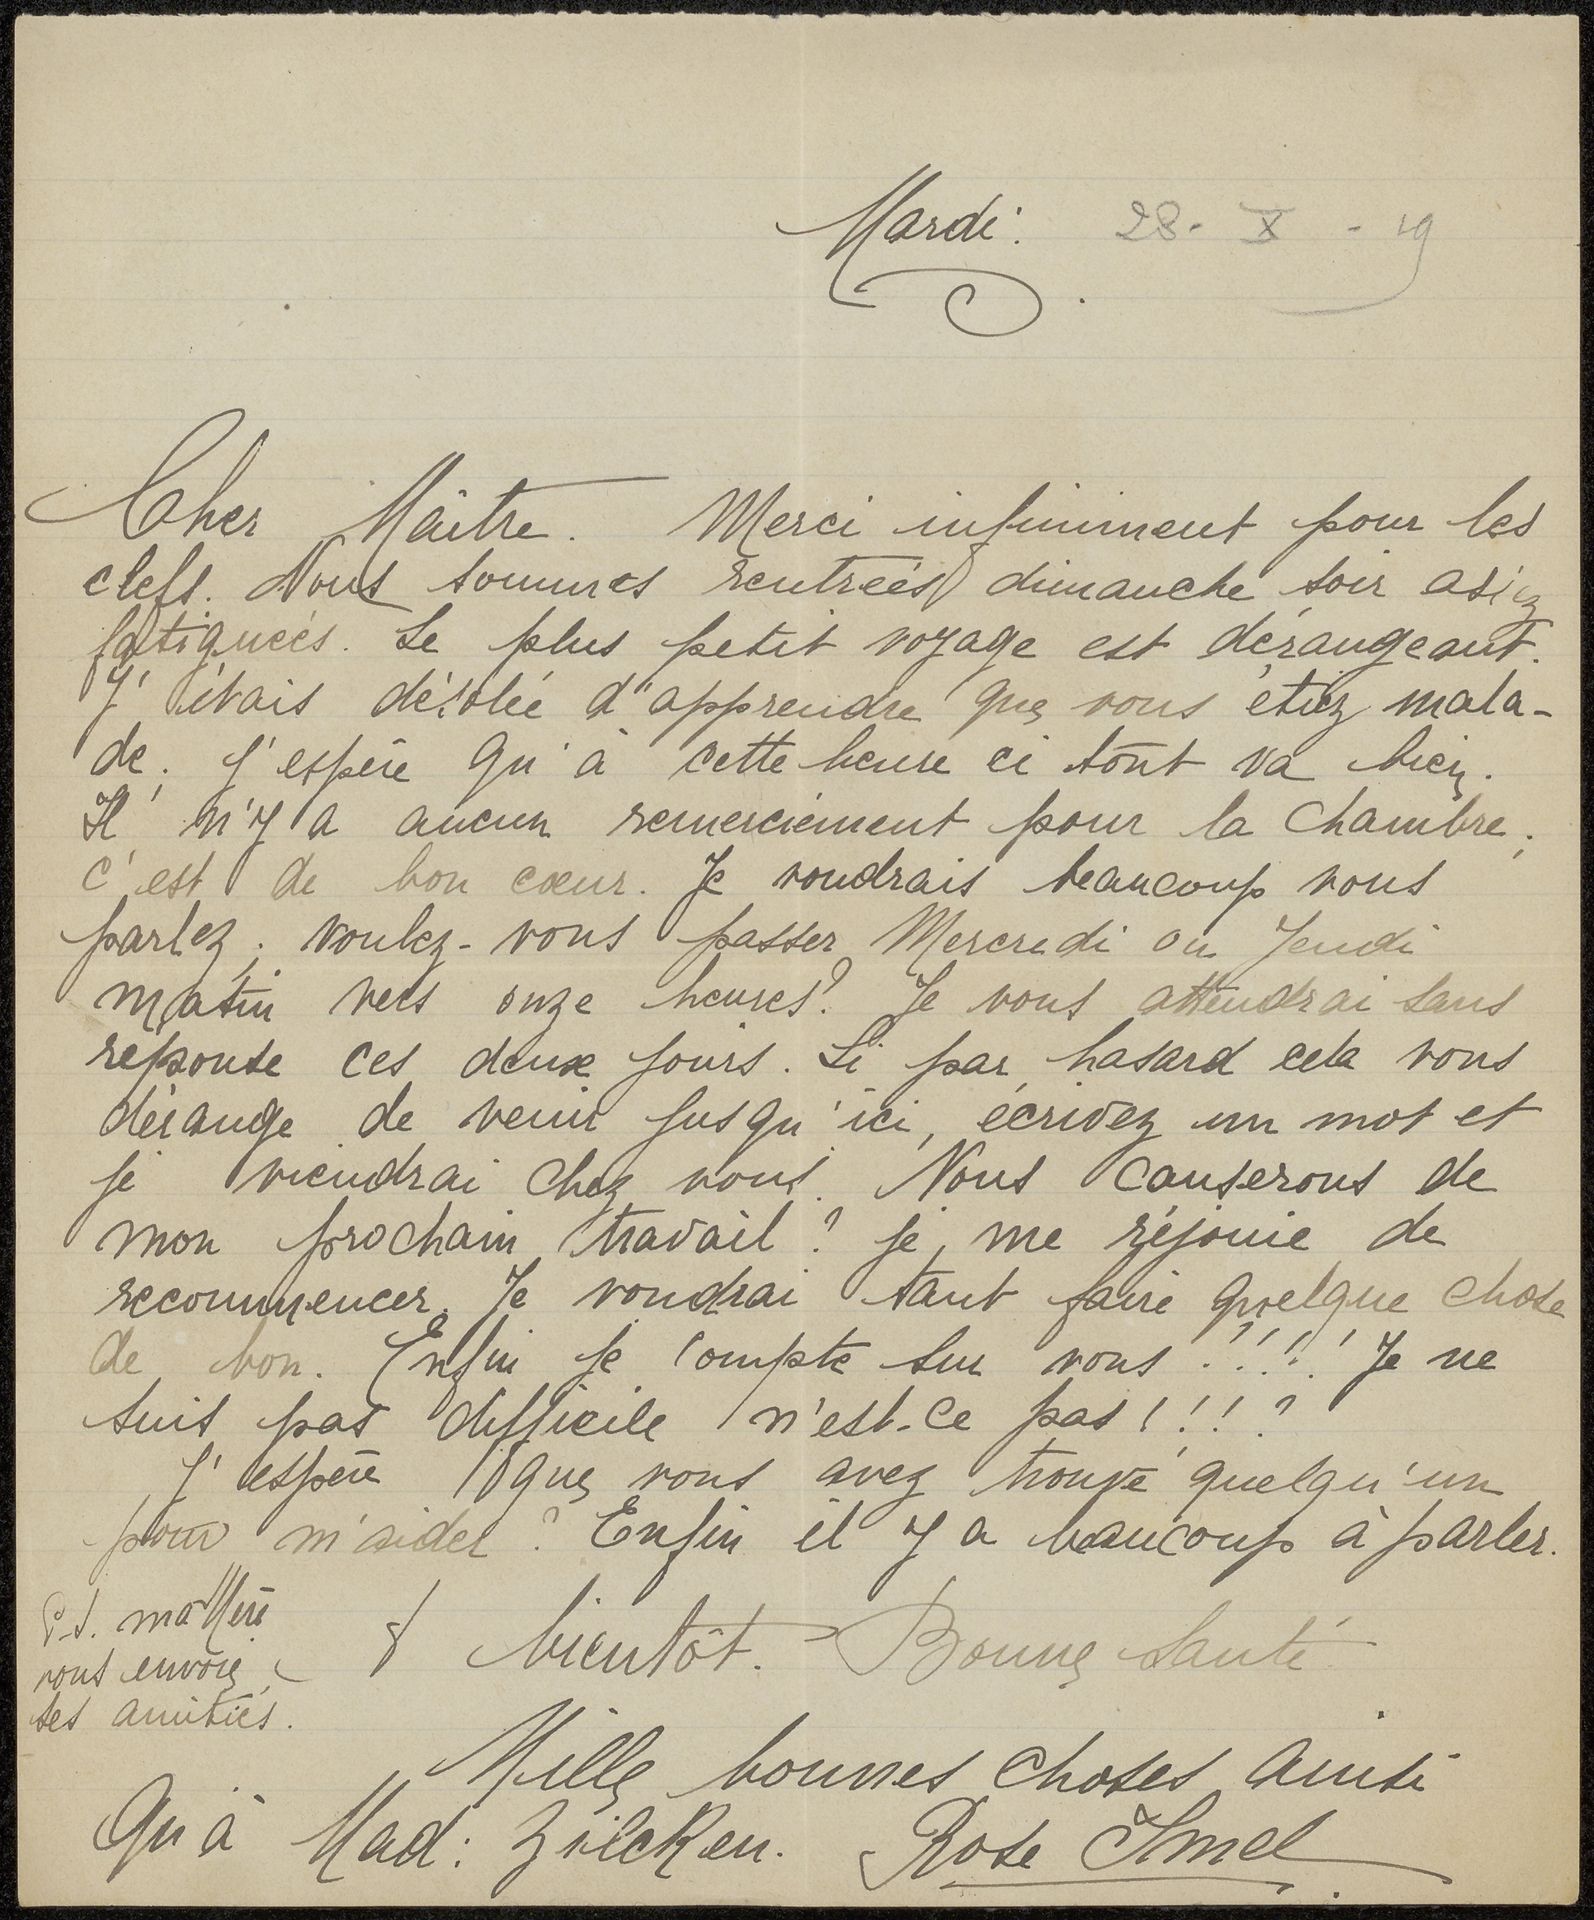 Mardi. 28 - X - 19
Cher Maître. Merci infiniment pour les
clefs. Nous sommes rentrées dimanche soir assez
fatiguées. Le plus petit voyage est dérangeant.
J'étais désolée d'apprendre que vous étiez mala-
de. J'espère qu'à cette heure ci tout va bien.
Il n'y a aucun remerciement pour la chambre,
c'est de bon cœur. Je voudrais beaucoup vous
parlez, voulez-vous passer Mercredi ou Jeudi
matin vers onze heures? Je vous attendrai sans
reponse ces deux jours. Si par hasard cela vous
dérange de venir jusqu'ici, écrivez un mot et
je viendrai chez vous. Nous causerons de
mon prochain travail? je me réjouie de
recommencer. Je voudrai tant faire quelque chose
de bon. Enfin je compte sur vous !!!! Je ne
suis pas difficile n'est-ce pas!!!?
J'espère que vous avez trouvé quelqu'un
pour m'aider? Enfin il y a beaucoup à parler.
à bientôt. Bonne Santé
P.S. ma Mère
vous envoie
ses amitiés.
Mille bonnes choses ainsi
qu'à Mad: Zilcken. Rose